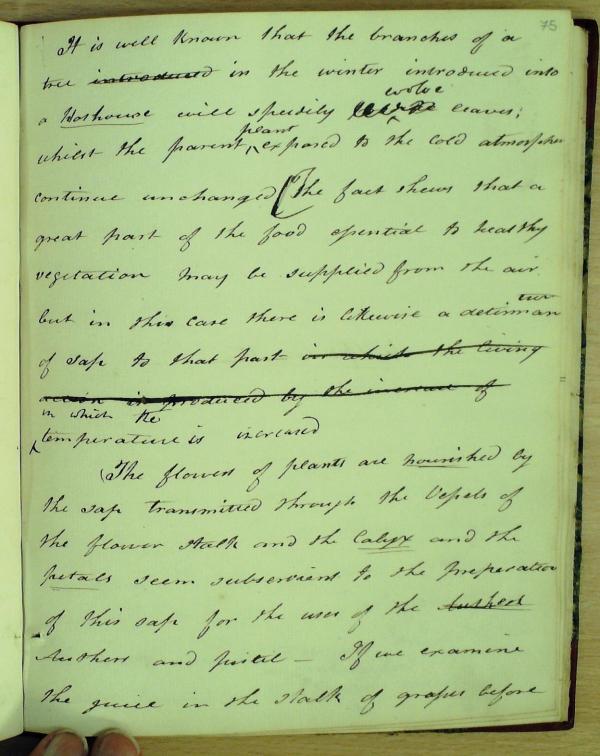 75
It is well known that the branches of a
tree introduced in the winter introduced into
a Hothouse will speedily evolve leaves;
whilst the parent plant exposed to the cold atmosphere
continue unchanged (The fact shews that a
great part of the food essential to healthy
vegetation may be supplied from the air
but in this case there is likewise a determination
of sap to that part in which the living
action is produced by the increase of
in which the
temperature is increased
(The flowers of plants are nourished by
the sap transmitted through the Vessels of
the flower stalk and the Calyx and the
petals seem subservient to the preparation
of this sap for the uses of the
Anthers and pistil — If we examine
the juice in the stalk of grapes before